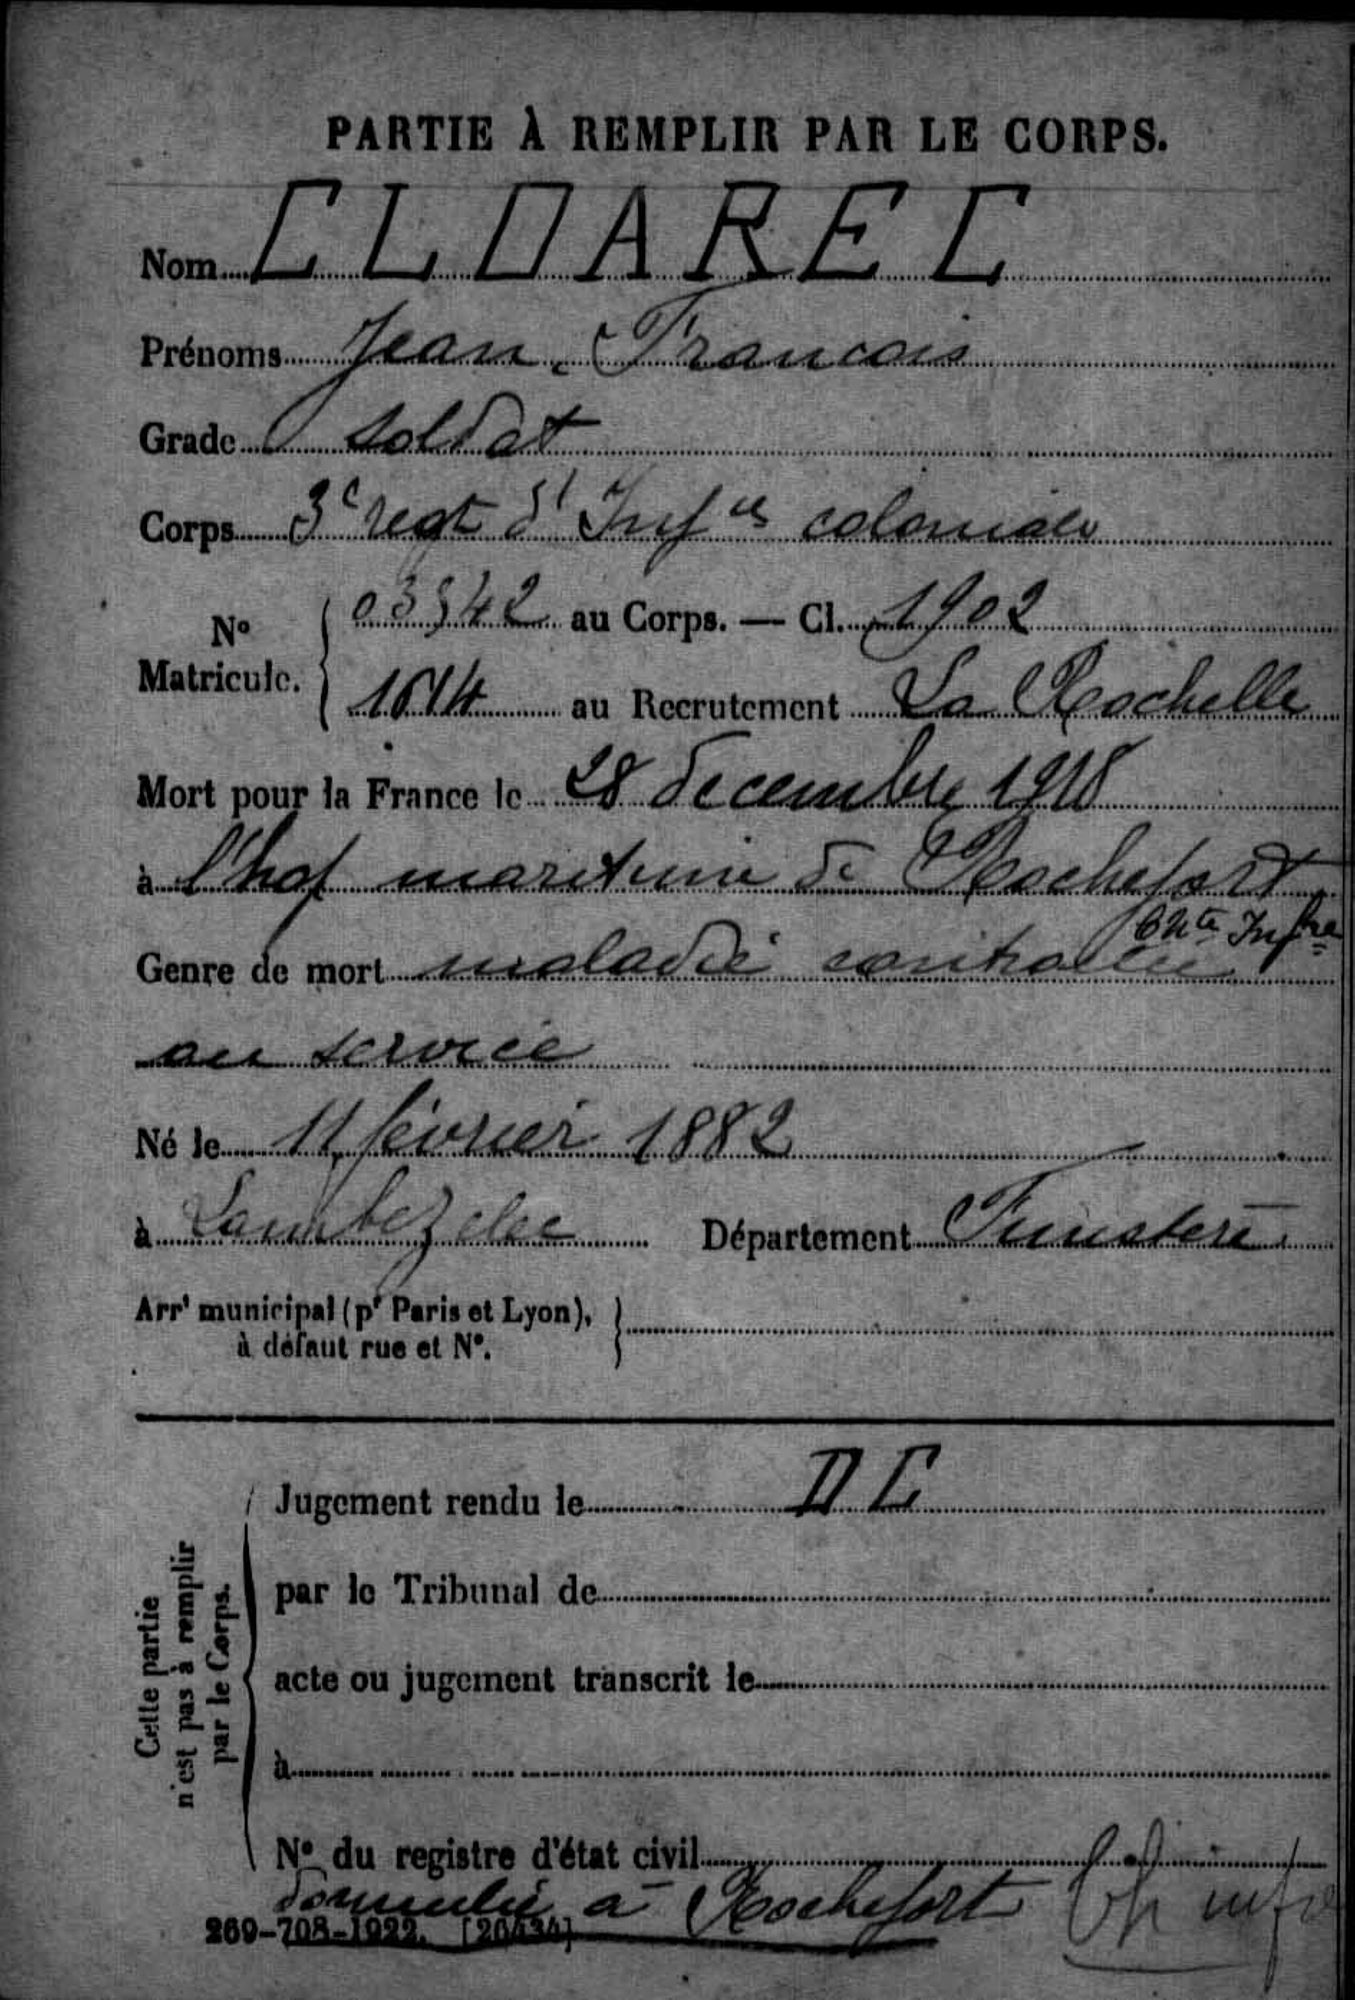 PARTIE À REMPLIR PAR LE CORPS.
Nom CLOAREC
Prénoms Jean, Francois
Grade soldat
Corps 3e regt d' Infie coloniale
No Matricule. { 03542 au Corps. — Cl. 1902
1614 au Recrutement La Rochelle
Mort pour la France le 28 decembre 1918
à l'hop maritime de Rochefort
Chte Infre
Genre de mort maladie contractée
au service
Né le 11 février 1882
à Lambezelec Département Finistere
Arrt municipal (pr Paris et Lyon),
à défaut rue et No.
Cette partie
n'est pas à remplir
par le Corps.
Jugement rendu le DC
par le Tribunal de
acte ou jugement transcrit le
à
No du registre d'état civil
domicilié à Rochefort
269-708-1922. [26434]